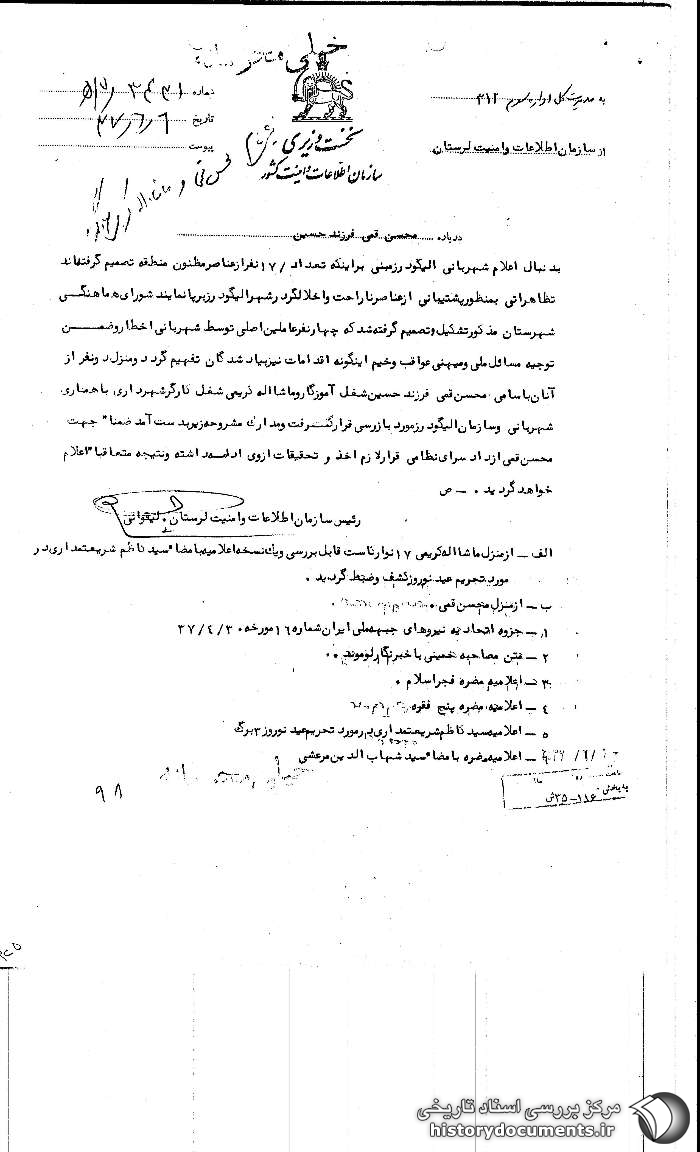 خیلی
به مدیریت کل اداره سوم ۳۱۲
از سازمان اطلاعات و امنیت لرستان
نخست وزیری
سازمان اطلاعات و امنیت کشور
شماره
تاریخ ۳۷/۶/۶
پیوست
درباره محسن قمی فرزند حسین
بدنبال اعلام شهربانی الیگودرزمبنی براینکه تعداد /۱۷ نفرازعناصرمظنون منطقه تصمیم گرفته‌اند
تظاهراتی بمنظورپشتیبانی ازعناصرناراحت واخلالگرد رشهرالیگود رزبرپانمایند شورای هماهنگی
شهرستان مذکورتشکیل وتصمیم گرفته شد که چهارنفرعاملین اصلی توسط شهربانی احضاروضمن
توجیه مسائل ملی ومیهنی عواقب وخیم اینگونه اقدامات نیزبیاد شدگان تفهیم گردد ومنزل دونفر از
آنان باسامی محسن قمی فرزند حسین شغل آموزگاروماشااله کریمی شغل کارگرشهرداری باهمیاری
شهربانی وسازمان الیگود رزمورد بازرسی قرارگرفت ومدارک مشروحه زیربدست آمد ضمنا" جهت
محسن قمی ازدادسرای نظامی قرارلازم اخذ و تحقیقات ازوی ادامه داشته ونتیجه متعاقبا" اعلام
خواهد گردید . ـ ص
رئیس سازمان اطلاعات وامنیت لرستان .
الف ـ ازمنزل ماشااله کریمی ۱۷ نوارکاست قابل بررسی ویک نسخه اعلامیه بامضا" سید کاظم شریعتمداری در
مورد تحریم عید نوروزکشف وضبط گردید .
ب ـ ازمنزل محسن قمی .
۱ـ جزوه اتحادیه نیروهای جبهه ملی ایران شماره ۱۶ مورخه ۳۷/۴/۳۰
۲ ـ متن مصاحبه خمینی با خبرنگارلوموند ..
۳ ـ اعلامیه مضره فجراسلام .
٤ ـ اعلامیه مضره پنج فقره
۵ ـ اعلامیه سید کاظم شریعتمداری درمورد تحریم عید نوروز ۳ برگ
ـ اعلامیه مضره بامضا" سید شهاب الدین مرعشی
به بخش
۹۸
مرکز بررسی اسناد تاریخی
historydocuments.ir